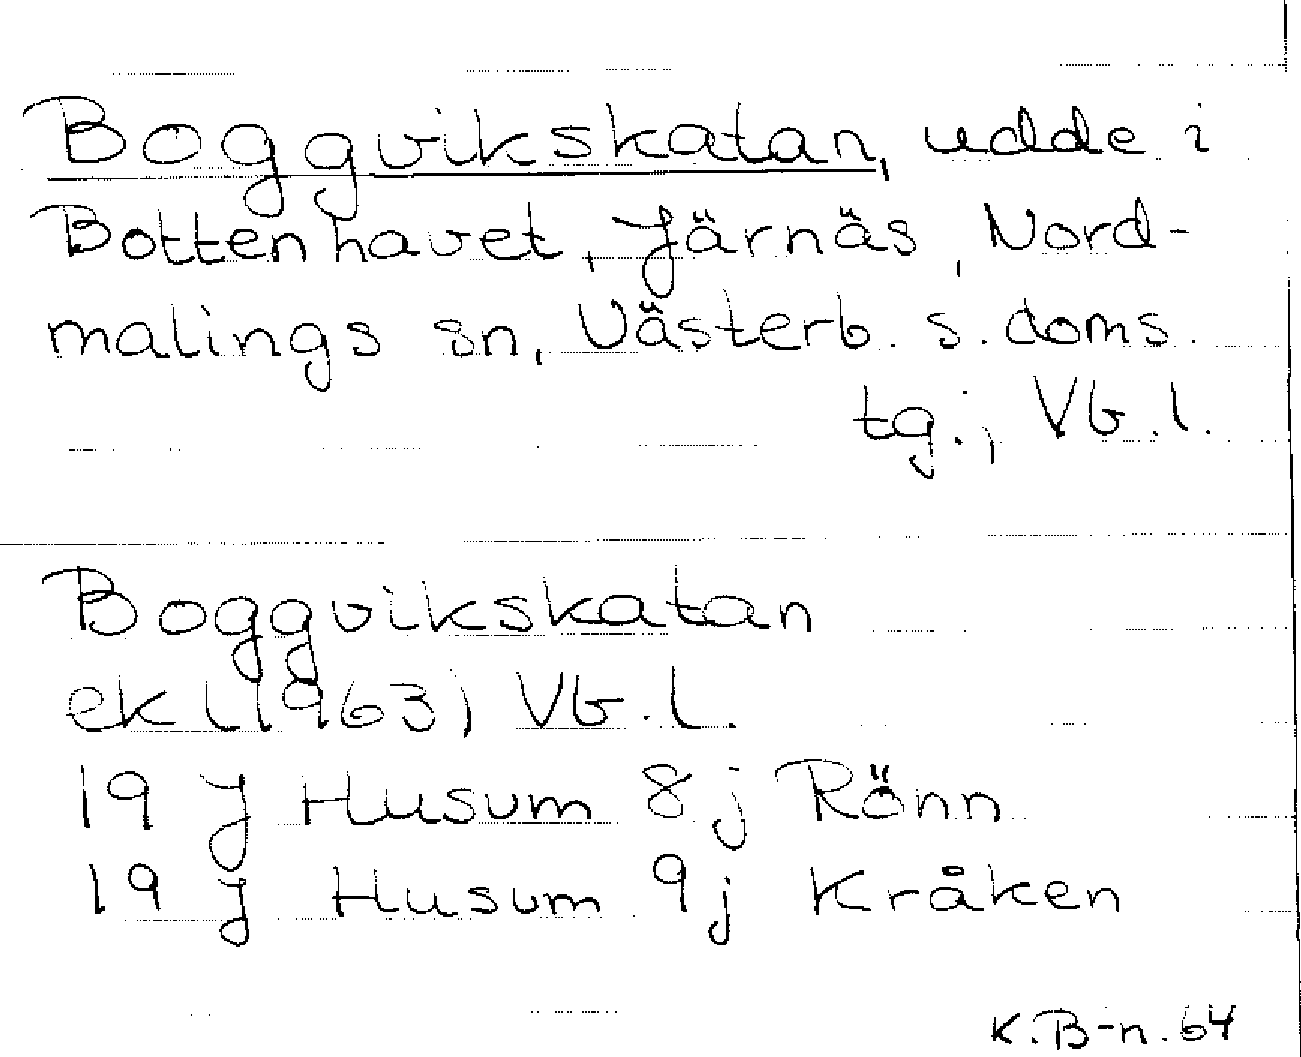 Boggvikskatan, udde i
Bottenhavet, Järnäs, Nord-
malings sn, Västerb. s. doms.
tg., Vb. l.
Boggvikskatan
ek (1963) Vb. l.
19 J Husum 8 j Rönn
19 J Husum 9 j Kråken
K.B-n. 64